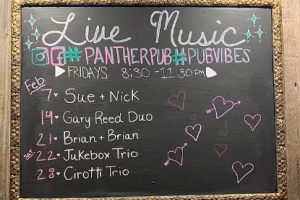 Live Music
#PANTHERPUB#PUBVIBES
FRIDAYS 8:30-11:30PM
Feb
7 Sue + Nick
14 Gary Reed Duo
21 Brian + Brian
SAT 22 Jukebox Trio
28 Cirotti Trio